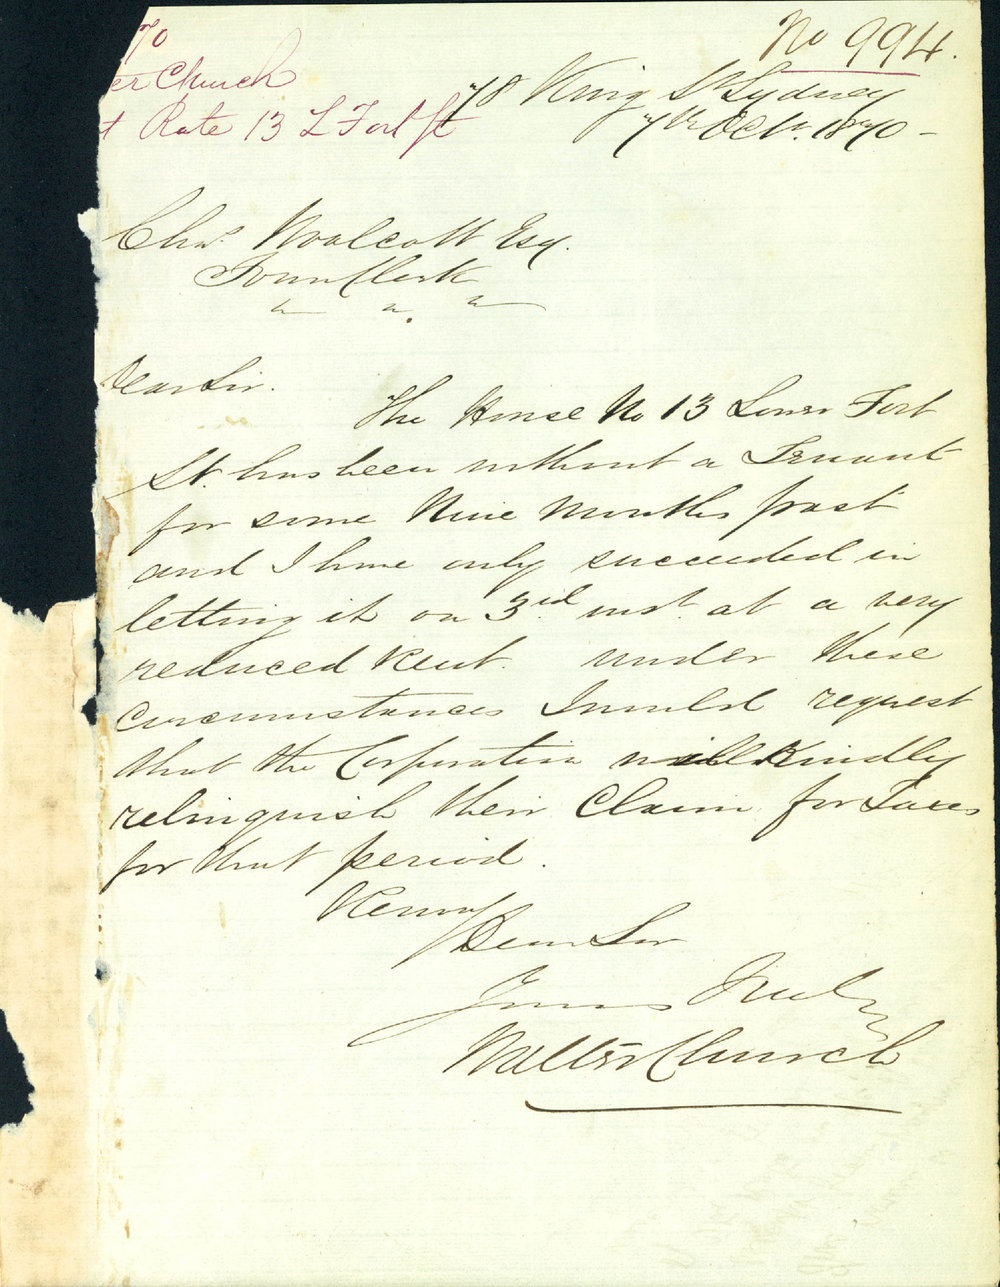 No 994.
70
er Church
t Rate 13 L Fort St
78 King St Sydney
7th Oct. 1870 -
Chas. Woolcott Esq.
Town Clerk
Dear Sir.
The House No 13 Lower Fort
St. has been without a Tenant
for some Nine Months past
and I have only succeeded in
letting it on 3rd inst. at a very
reduced Rent. under these
circumstances I would request
that the Corporation will Kindly
relinquish their Claim for Taxes
for that period.
Remain
Dear Sir
Yours Truly
Walter Church